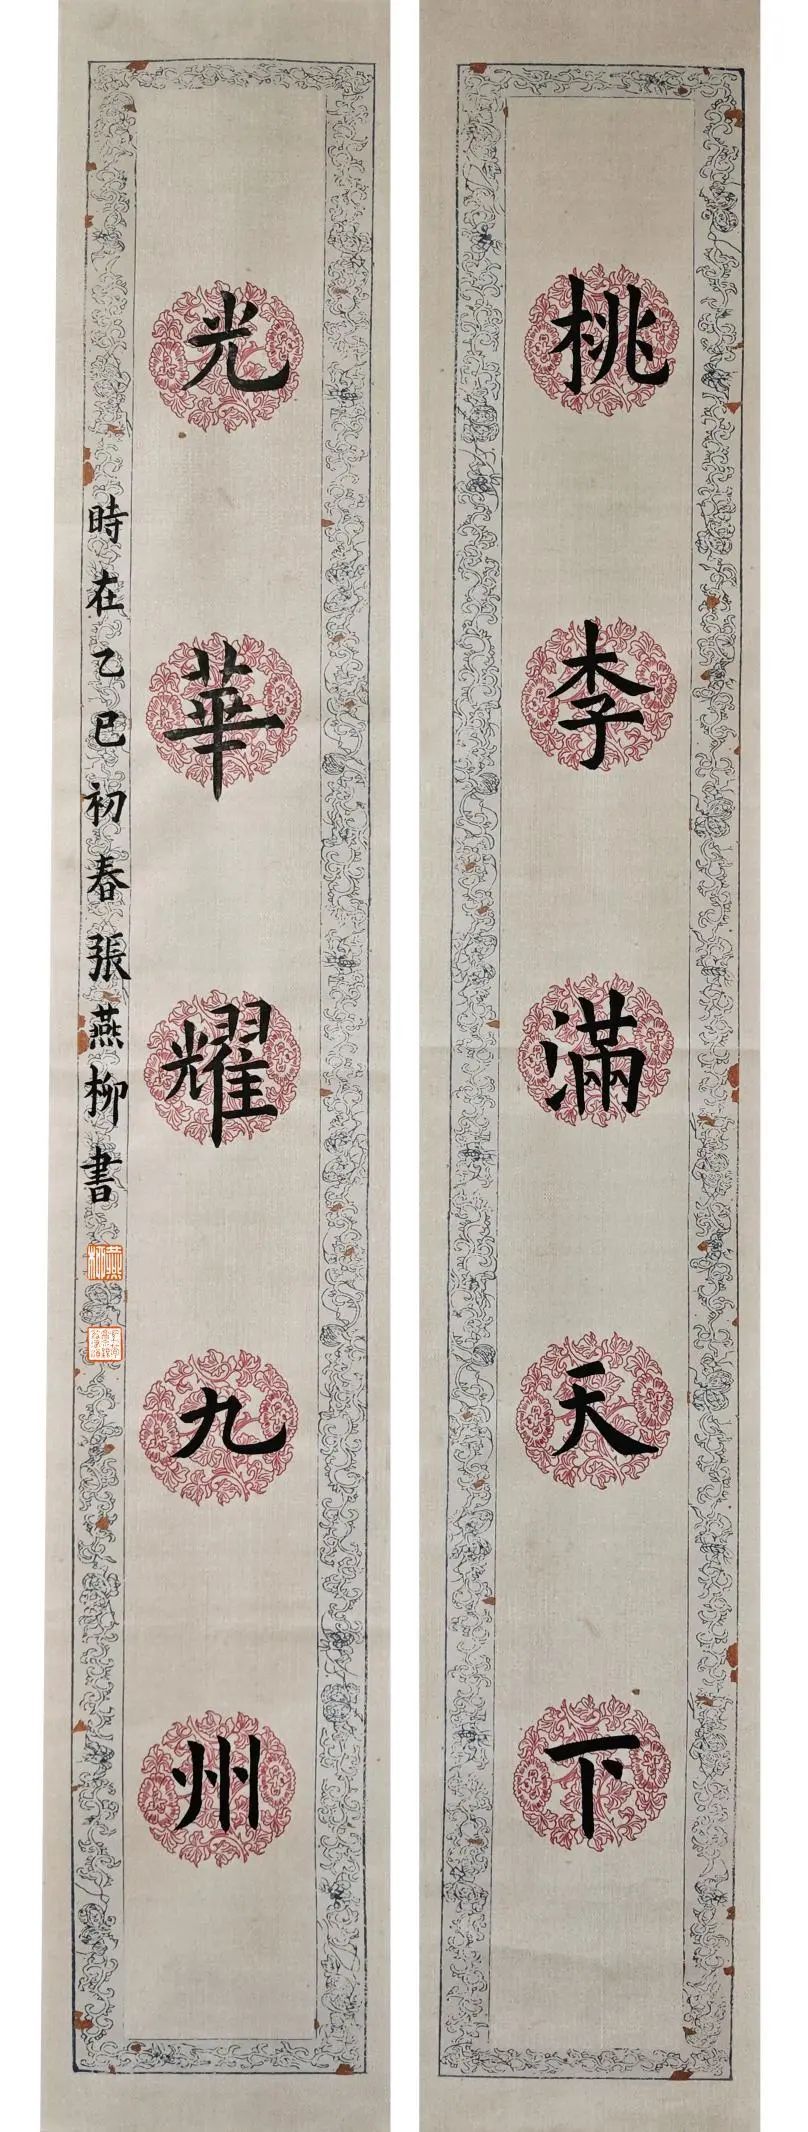 桃李滿天下
光華耀九州
時在乙巳初春張燕柳書
燕柳